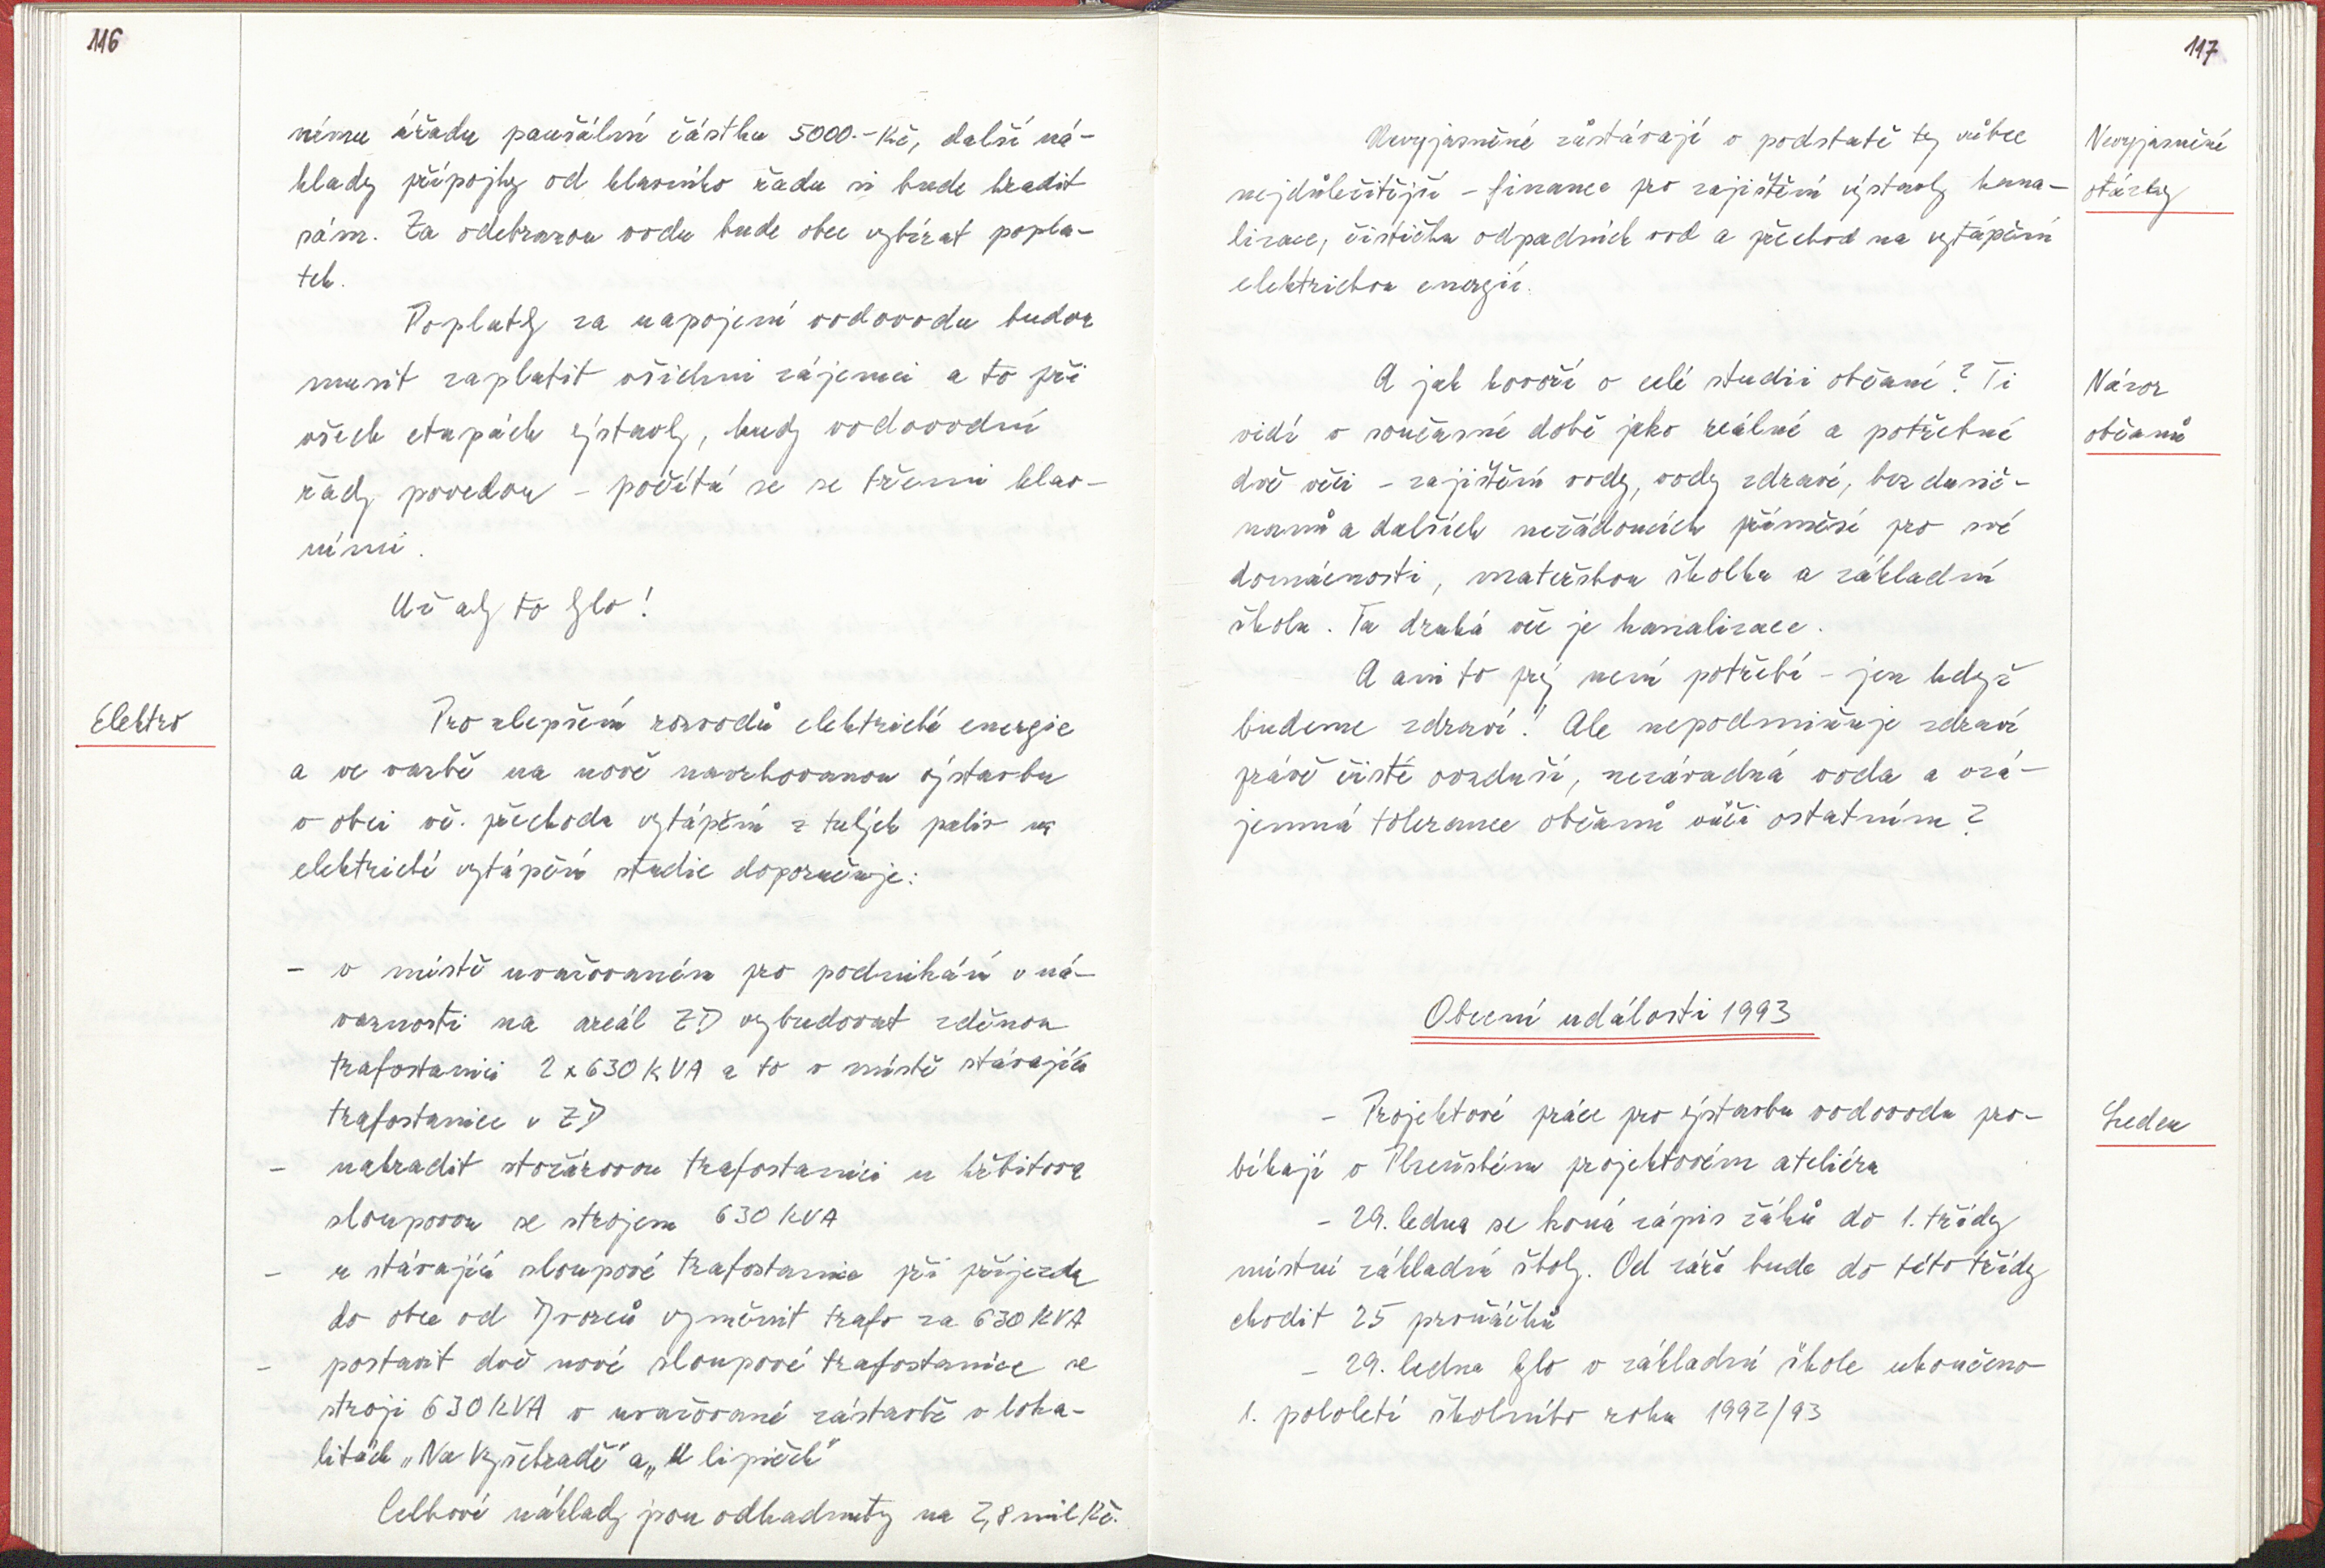 116
nímu úřadu paušální částku 5000.- Kč, další ná-
klady přípojky od hlavního řadu si bude hradit
sám. Za odebranou vodu bude obec vybírat popla-
tek.
Poplatky za napojení vodovodu budou
muset zaplatit všichni zájemci a to při
všech etapách výstavby, kudy vodovodní
řady povedou – počítá se se třemi hlav-
ními.
Už aby to bylo!
Elektro
Pro zlepšení rozvodů elektrické energie
a ve vazbě na nově navrhovanou výstavbu
v obci vč. přechodu vytápění z tuhých paliv na
elektrické vytápění studie doporučuje:
– v místě uvažovaném pro podnikání v ná-
vaznosti na areál ZD vybudovat zděnou
trafostanici 2 x 630 kVA a to v místě stávající
trafostanice v ZD
– nahradit stožárovou trafostanici u hřbitova
sloupovou se strojem 630 kVA
– u stávající sloupové trafostanice při příjezdu
do obce od Dvorců vyměnit trafo za 630 kVA
– postavit dvě nové sloupové trafostanice se
stroji 630 kVA v uvažované zástavbě v loka-
litách „Na Vyšehradě" a „U lipiček"
Celkové náklady jsou odhadnuty na 2,8 mil Kč.
117
Nevyjasněné zůstávají v podstatě ty vůbec
nejdůležitější – finance pro zajištění výstavby kana-
lizace, čistička odpadních vod a přechod na vytápění
elektrickou energií.
Nevyjasněné
otázky
A jak hovoří o celé studii občané? Ti
vidí v současné době jako reálné a potřebné
dvě věci – zajištění vody, vody zdravé, bez dusič-
nanů a dalších nežádoucích příměsí pro své
domácnosti, mateřskou školku a základní
školu. Ta druhá věc je kanalizace.
Názor
občanů
A ani to prý není potřebí – jen když
budeme zdraví! Ale nepodmiňuje zdraví
právě čisté ovzduší, nezávadná voda a vzá-
jemná tolerance občanů vůči ostatním?
Obecní události 1993
Leden
– Projektové práce pro výstavbu vodovodu pro-
bíhají v Plzeňském projektovém ateliéru
– 29. ledna se koná zápis žáků do 1. třídy
místní základní školy. Od září bude do této třídy
chodit 25 prvňáčků
– 29. ledna bylo v základní škole ukončeno
1. pololetí školního roku 1992/93